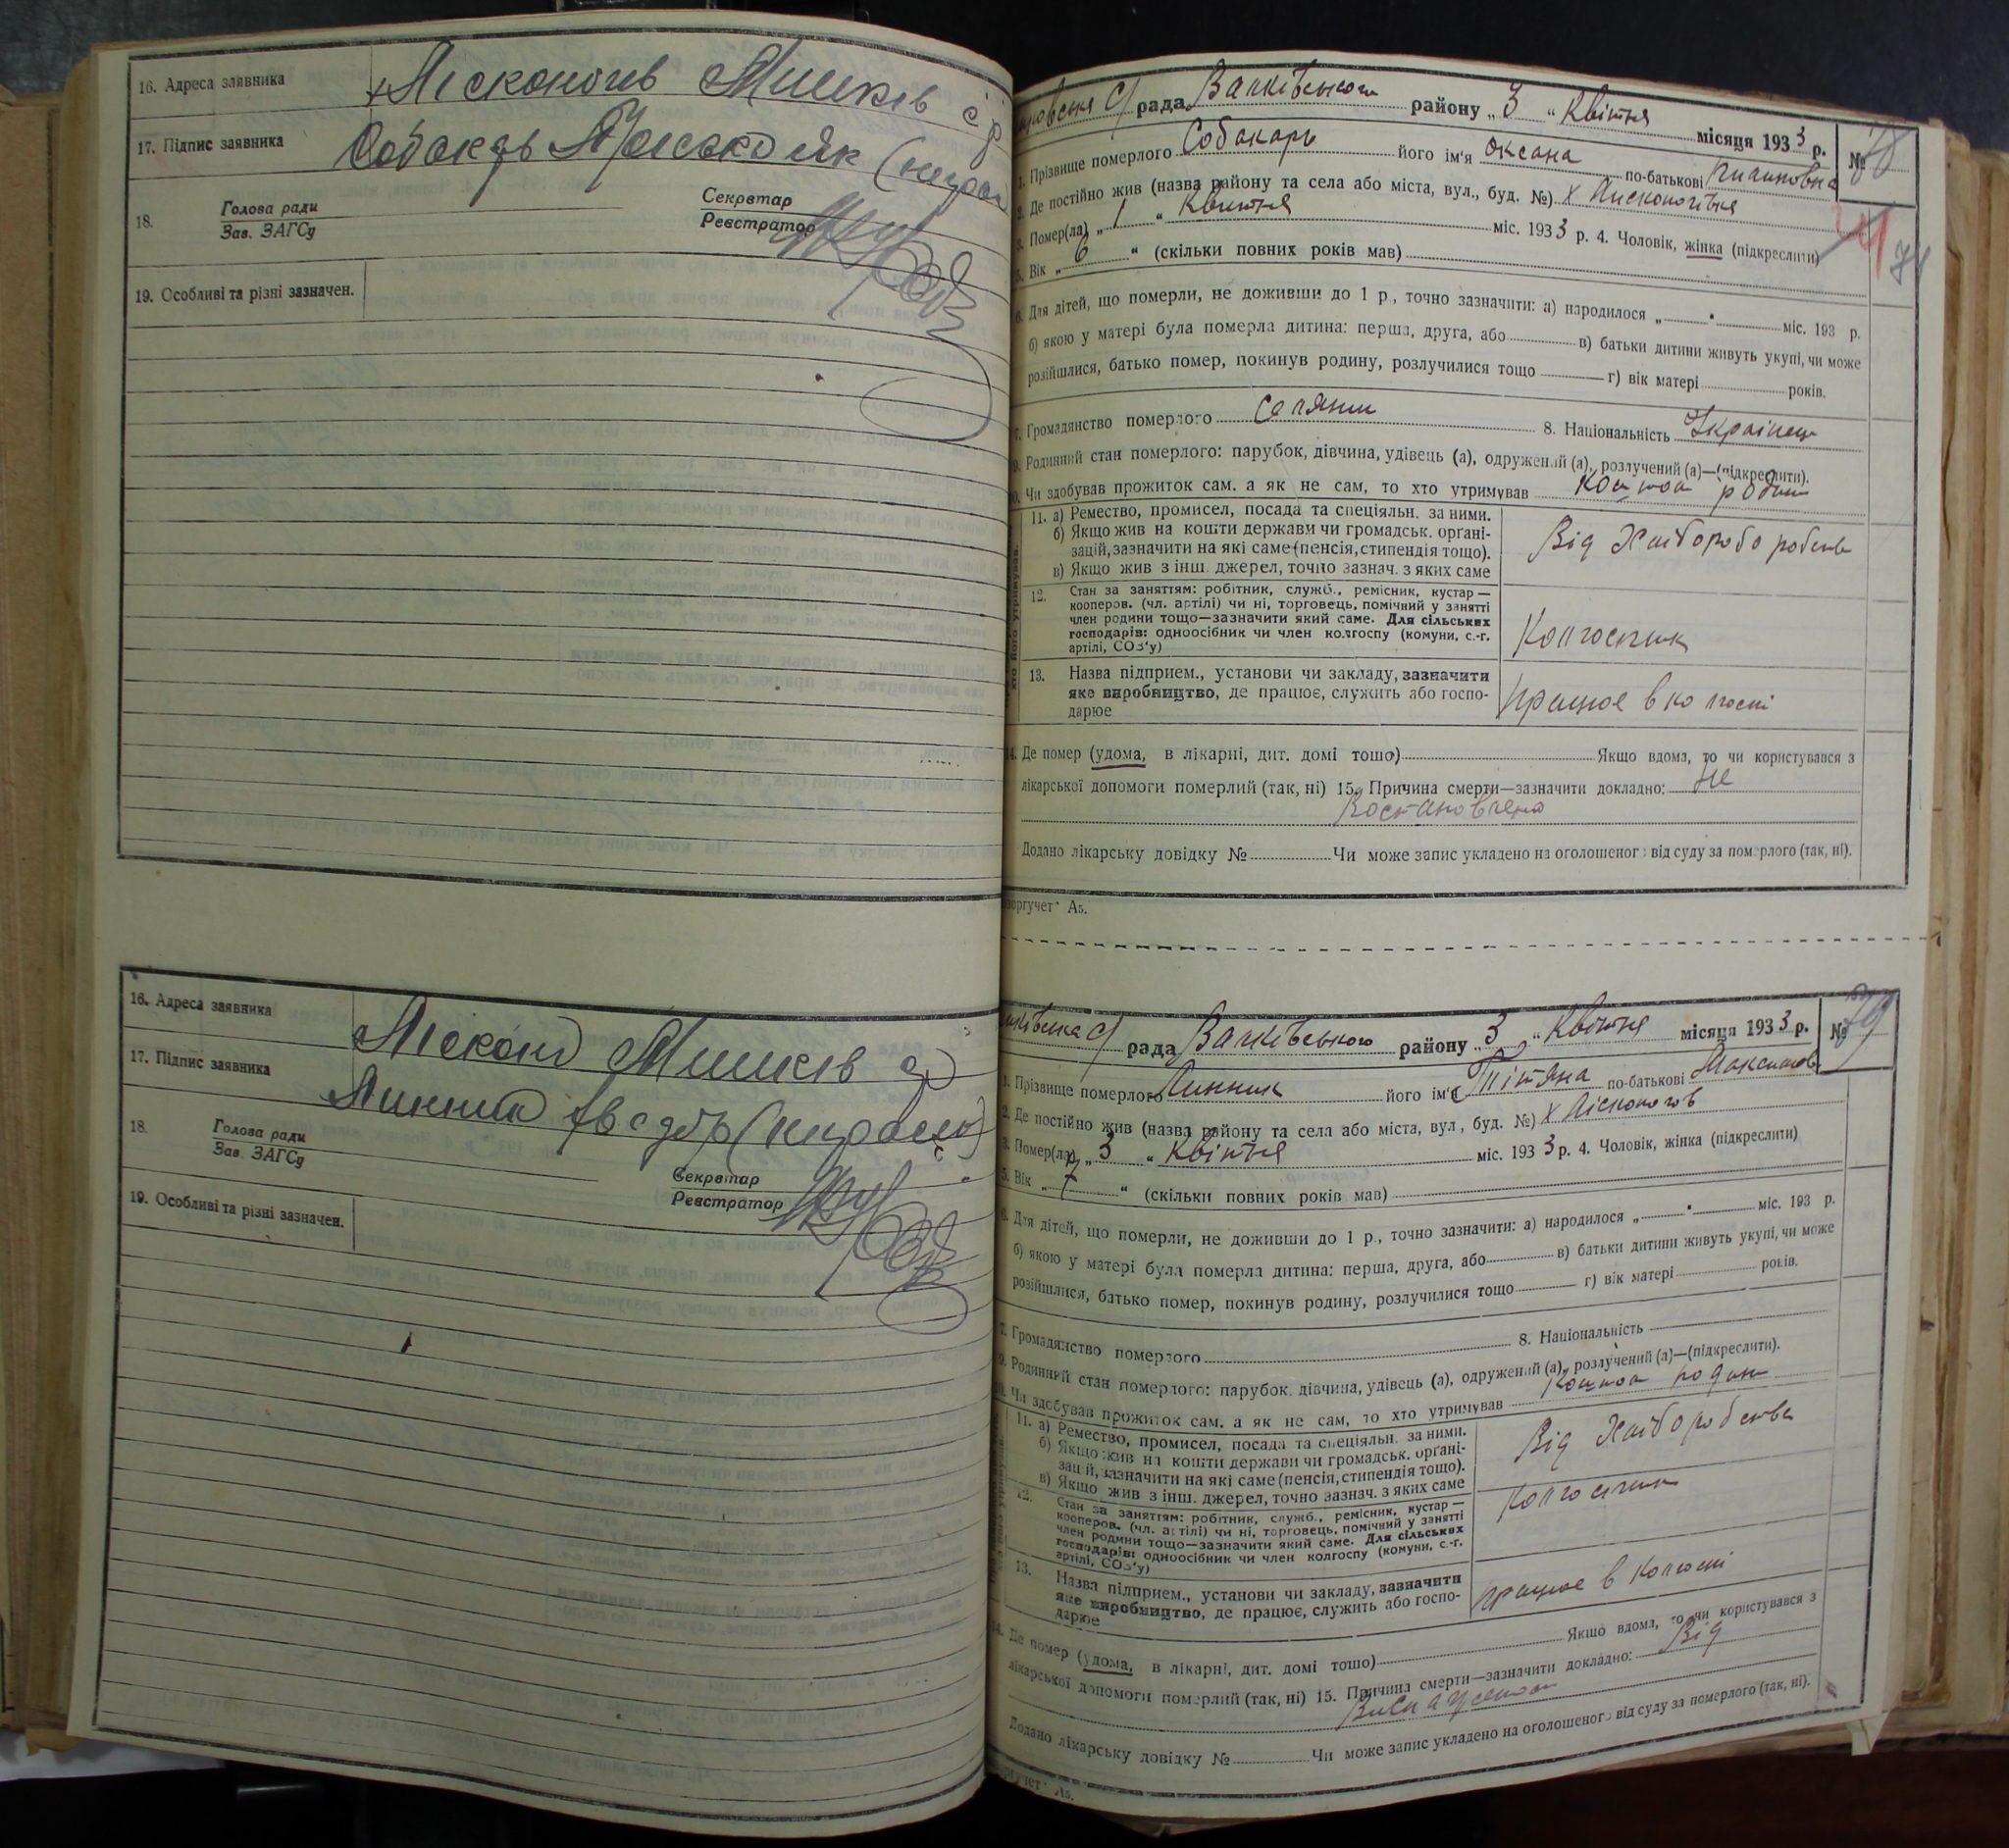 16. Адреса заявника Місконогів Мишків с р
17. Підпис заявника Собакарь
18. Голова ради
Зав. ЗАГСу
Секретар
Реєстратор
19. Особливі та різні зазначен.
16. Адреса заявника Мишків
17. Підпис заявника Линник
18. Голова ради
Зав. ЗАГСу
Секретар
Реєстратор
19. Особливі та різні зазначен.
рада Валківського району „ 3 “ Квітня місяця 1933 р. №
1. Прізвище померлого Собакарь його ім'я Оксана по-батькові
2. Де постійно жив (назва району та села або міста, вул., буд. №) х
3. Помер(ла) „ 1 “ Квитня міс. 1933 р. 4. Чоловік, жінка (підкреслити)
74
5. Вік „ 6 “ (скільки повних років мав)
6. Для дітей, що померли, не доживши до 1 р., точно зазначити: а) народилося „ “ міс. 193 р.
б) якою у матері була померла дитина: перша, друга, або в) батьки дитини живуть укупі, чи може
розійшлися, батько помер, покинув родину, розлучилися тощо г) вік матері років.
7. Громадянство померлого Селянин 8. Національність Українець
9. Родинний стан померлого: парубок, дівчина, удівець (а), одружений (а), розлучений (а)—(підкреслити).
10. Чи здобував прожиток сам, а як не сам, то хто утримував
11. а) Ремество, промисел, посада та спеціяльн. за ними.
б) Якщо жив на кошти держави чи громадськ. органі-
зацій, зазначити на які саме (пенсія, стипендія тощо).
в) Якщо жив з інш. джерел, точно зазнач. з яких саме
Від
12. Стан за заняттям: робітник, служб., ремісник, кустар—
кооперов. (чл. артілі) чи ні, торговець, помічний у занятті
член родини тощо—зазначити який саме. Для сільських
господарів: одноосібник чи член колгоспу (комуни, с.-г.
артілі, СОЗ'у)
Колгоспник
13. Назва підприєм., установи чи закладу, зазначити
яке виробництво, де працює, служить або госпо-
дарює
працює в колгоспі
14. Де помер (удома, в лікарні, дит. домі тощо) Якщо вдома, то чи користувався з
лікарської допомоги померлий (так, ні) 15. Причина смерти—зазначити докладно: Не
Додано лікарську довідку № Чи може запис укладено на оголошеного від суду за померлого (так, ні).
А5.
рада Валківського району „ 3 “ Квітня місяця 1933 р. №
1. Прізвище померлого Линник його ім'я по-батькові
2. Де постійно жив (назва району та села або міста, вул., буд. №) х Місконогів
3. Помер(ла) „ 3 “ Квітня міс. 1933 р. 4. Чоловік, жінка (підкреслити)
5. Вік „ 7 “ (скільки повних років мав)
6. Для дітей, що померли, не доживши до 1 р., точно зазначити: а) народилося „ “ міс. 193 р.
б) якою у матері була померла дитина: перша, друга, або в) батьки дитини живуть укупі, чи може
розійшлися, батько помер, покинув родину, розлучилися тощо г) вік матері років.
7. Громадянство померлого 8. Національність
9. Родинний стан померлого: парубок, дівчина, удівець (а), одружений (а), розлучений (а)—(підкреслити).
10. Чи здобував прожиток сам, а як не сам, то хто утримував
11. а) Ремество, промисел, посада та спеціяльн. за ними.
б) Якщо жив на кошти держави чи громадськ. органі-
зацій, зазначити на які саме (пенсія, стипендія тощо).
в) Якщо жив з інш. джерел, точно зазнач. з яких саме
Від Хліборобства
12. Стан за заняттям: робітник, служб., ремісник, кустар—
кооперов. (чл. артілі) чи ні, торговець, помічний у занятті
член родини тощо—зазначити який саме. Для сільських
господарів: одноосібник чи член колгоспу (комуни, с.-г.
артілі, СОЗ'у)
Колгоспник
13. Назва підприєм., установи чи закладу, зазначити
яке виробництво, де працює, служить або госпо-
дарює
працює в колгоспі
14. Де помер (удома, в лікарні, дит. домі тощо) Якщо вдома, то чи користувався з
лікарської допомоги померлий (так, ні) 15. Причина смерти—зазначити докладно: Від
Додано лікарську довідку № Чи може запис укладено на оголошеного від суду за померлого (так, ні).
А5.